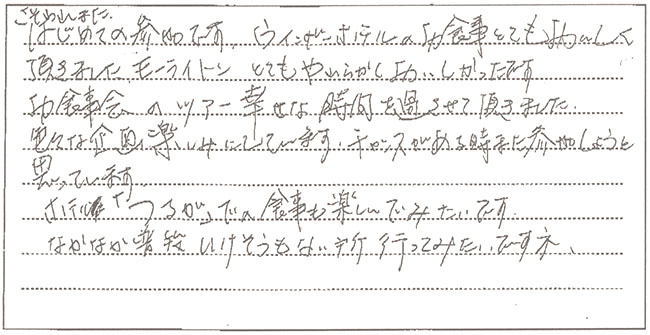 はじめての参加です。ウィンザーホテルのお食事とてもおいしく
頂きました。とてもやわらかくおいしかったです
お食事会のツアー幸せな時間を過させて頂きました。
色々な企画楽しみにしています。チャンスがある時また参加しようと
思っています。
ホテル「つるが」での食事も楽しんでみたいです。
なかなか普段いけそうもない所行ってみたいですネ、